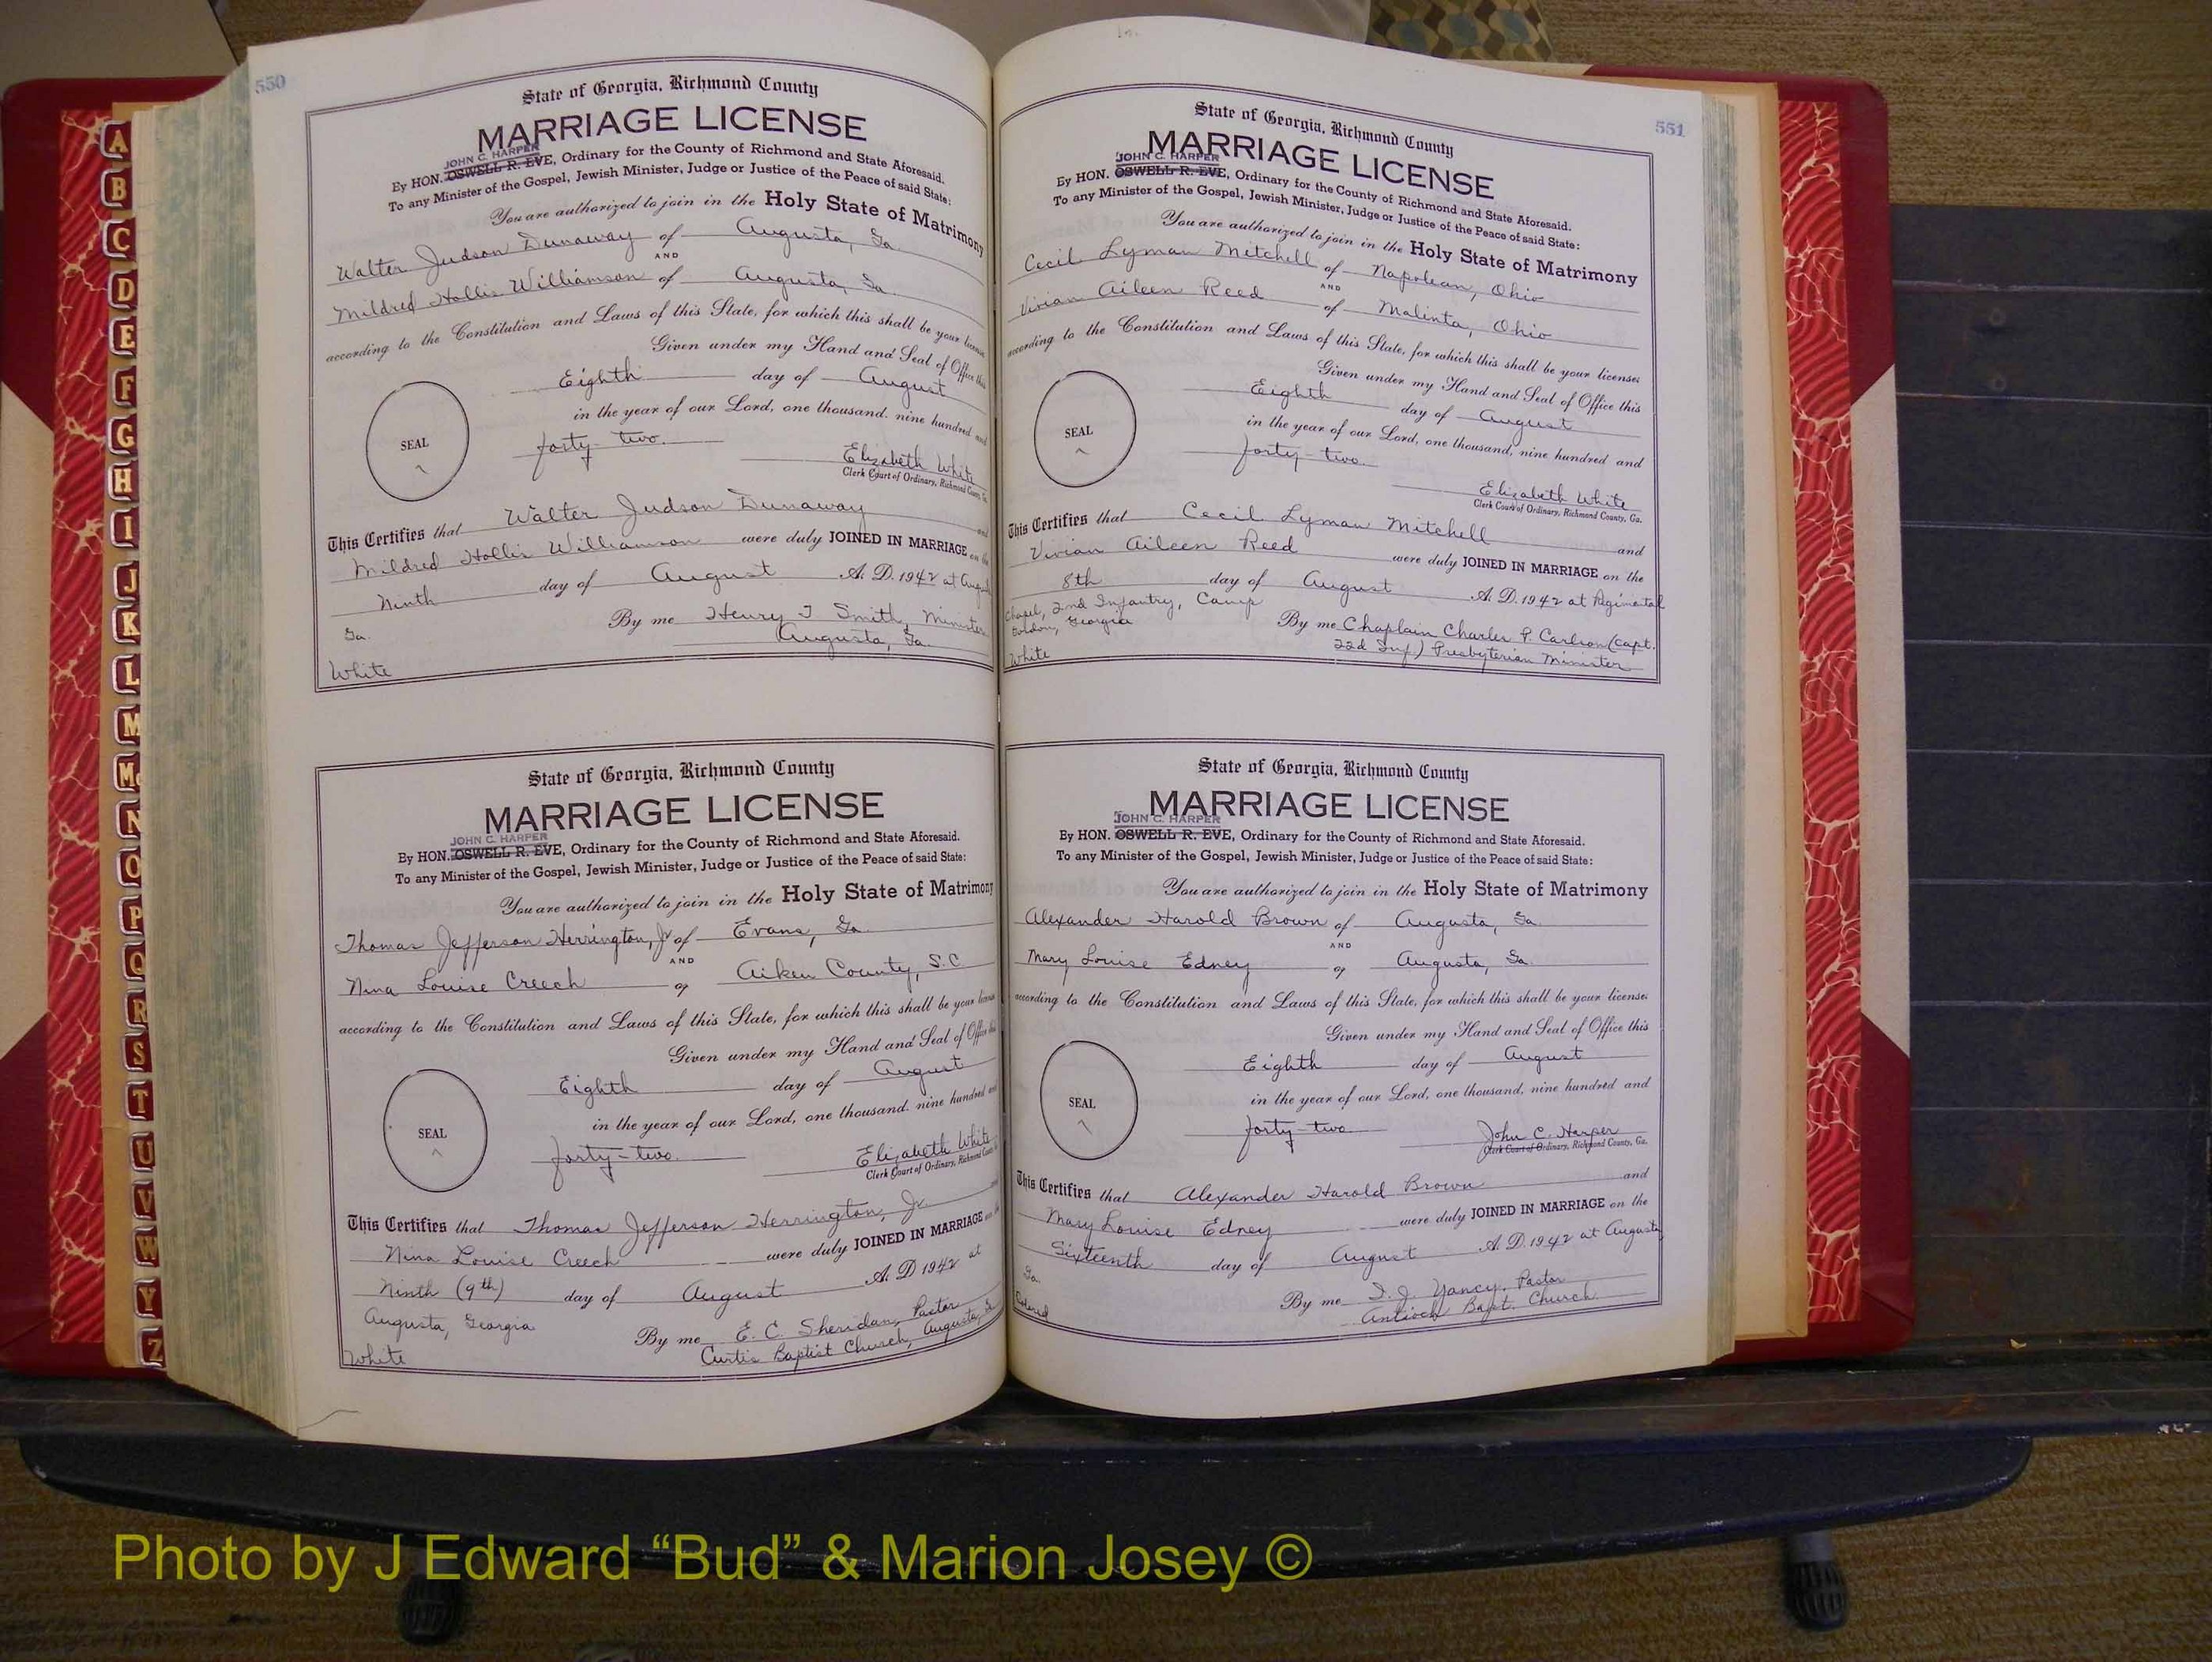 550
State of Georgia, Richmond County
MARRIAGE LICENSE
JOHN C. HARPER
By HON. OSWELL R. EVE, Ordinary for the County of Richmond and State Aforesaid.
To any Minister of the Gospel, Jewish Minister, Judge or Justice of the Peace of said State:
You are authorized to join in the Holy State of Matrimony
Walter Judson Dunaway of Augusta, Ga.
AND
Mildred Hollis Williamson of Augusta, Ga.
according to the Constitution and Laws of this State, for which this shall be your license
Given under my Hand and Seal of Office this
Eighth day of August
in the year of our Lord, one thousand, nine hundred and
forty-two.
SEAL
Elizabeth White
Clerk Court of Ordinary, Richmond County, Ga.
This Certifies that Walter Judson Dunaway and
Mildred Hollis Williamson were duly JOINED IN MARRIAGE on the
Ninth day of August A. D. 1942 at Augusta
Ga.
By me Henry J Smith, Minister
Augusta, Ga.
White
State of Georgia, Richmond County
MARRIAGE LICENSE
JOHN C. HARPER
By HON. OSWELL R. EVE, Ordinary for the County of Richmond and State Aforesaid.
To any Minister of the Gospel, Jewish Minister, Judge or Justice of the Peace of said State:
You are authorized to join in the Holy State of Matrimony
Thomas Jefferson Herrington, Jr of Evans, Ga.
AND
Nina Louise Creech of Aiken County, S.C.
according to the Constitution and Laws of this State, for which this shall be your license
Given under my Hand and Seal of Office this
Eighth day of August
in the year of our Lord, one thousand, nine hundred and
forty-two.
SEAL
Elizabeth White
Clerk Court of Ordinary, Richmond County
This Certifies that Thomas Jefferson Herrington, Jr. and
Nina Louise Creech were duly JOINED IN MARRIAGE on the
Ninth (9th) day of August A. D. 1942 at
Augusta, Georgia
By me E. C. Sheridan, Pastor
Curtis Baptist Church, Augusta, Ga
White
551
State of Georgia, Richmond County
MARRIAGE LICENSE
JOHN C. HARPER
By HON. OSWELL R. EVE, Ordinary for the County of Richmond and State Aforesaid.
To any Minister of the Gospel, Jewish Minister, Judge or Justice of the Peace of said State:
You are authorized to join in the Holy State of Matrimony
Cecil Lyman Mitchell of Napolean, Ohio
AND
Vivian Aileen Reed of Malinta, Ohio
according to the Constitution and Laws of this State, for which this shall be your license:
Given under my Hand and Seal of Office this
Eighth day of August
in the year of our Lord, one thousand, nine hundred and
forty-two.
SEAL
Elizabeth White
Clerk Court of Ordinary, Richmond County, Ga.
This Certifies that Cecil Lyman Mitchell and
Vivian Aileen Reed were duly JOINED IN MARRIAGE on the
8th day of August A. D. 1942 at Regimental
Chapel, 22nd Infantry, Camp
Gordon, Georgia
By me Chaplain Charles P. Carlson (Capt.
22d Inf.) Presbyterian Minister
White
State of Georgia, Richmond County
MARRIAGE LICENSE
JOHN C. HARPER
By HON. OSWELL R. EVE, Ordinary for the County of Richmond and State Aforesaid.
To any Minister of the Gospel, Jewish Minister, Judge or Justice of the Peace of said State:
You are authorized to join in the Holy State of Matrimony
Alexander Harold Brown of Augusta, Ga.
AND
Mary Louise Edney of Augusta, Ga.
according to the Constitution and Laws of this State, for which this shall be your license:
Given under my Hand and Seal of Office this
Eighth day of August
in the year of our Lord, one thousand, nine hundred and
forty-two.
SEAL
John C. Harper
Clerk Court of Ordinary, Richmond County, Ga.
This Certifies that Alexander Harold Brown and
Mary Louise Edney were duly JOINED IN MARRIAGE on the
Sixteenth day of August A. D. 1942 at Augusta
Ga.
By me I. J. Yancy, Pastor
Antioch Bapt. Church.
Colored
A
B
C
D
E
F
G
H
I
J
K
L
M
Mc
N
O
P
Q
R
S
T
U
V
W
Y
Z
Photo by J Edward “Bud” & Marion Josey ©